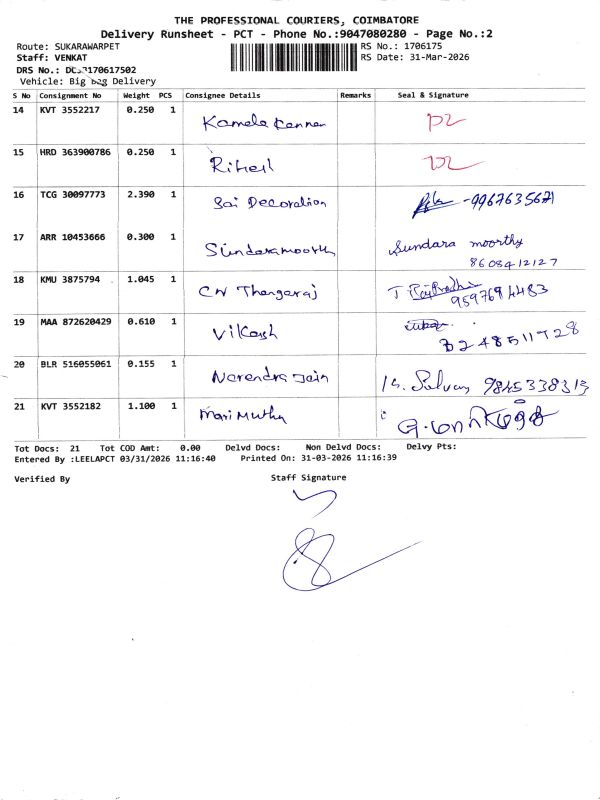 THE PROFESSIONAL COURIERS, COIMBATORE
Delivery Runsheet - PCT - Phone No.:9047080280 - Page No.:2
Route: SUKARAWARPET
RS No.: 1706175
Staff: VENKAT
RS Date: 31-Mar-2026
DRS No.:
Vehicle: Big bag Delivery
S No Consignment No Weight PCS Consignee Details Remarks Seal & Signature
14 KVT 3552217 0.250 1
Kamala Kannan
15 HRD 363900786 0.250 1
Ritesh
16 TCG 30097773 2.390 1 Sai Decoration -9967635671
17 ARR 10453666 0.300 1 Sundaramoorthy Sundara moorthy
8608412127
18 KMU 3875794 1.045 1 CN Thangaraj
9597694483
19 MAA 872620429 0.610 1 Vikash
8248511728
20 BLR 516055061 0.155 1 Narendra Jain 9845338313
21 KVT 3552182 1.100 1 Mari Muthu
Tot Docs: 21 Tot COD Amt: 0.00 Delvd Docs: Non Delvd Docs: Delvy Pts:
Entered By :LEELAPCT 03/31/2026 11:16:40 Printed On: 31-03-2026 11:16:39
Verified By Staff Signature